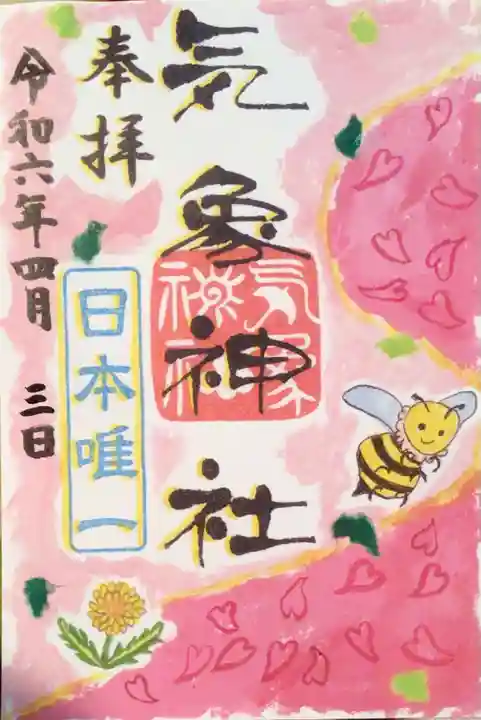 気象神社
気象
神社
奉拝
日本唯一
令和六年四月 三日